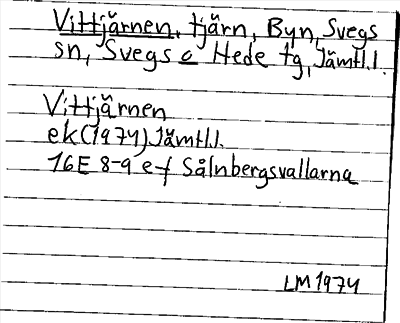 Vittjärnen, tjärn, Byn, Svegs
sn, Svegs o Hede tg, Jämtl.l.
Vittjärnen
ek(1974)Jämtl.l.
16E 8-9 e-f Sålnbergsvallarna
LM 1974